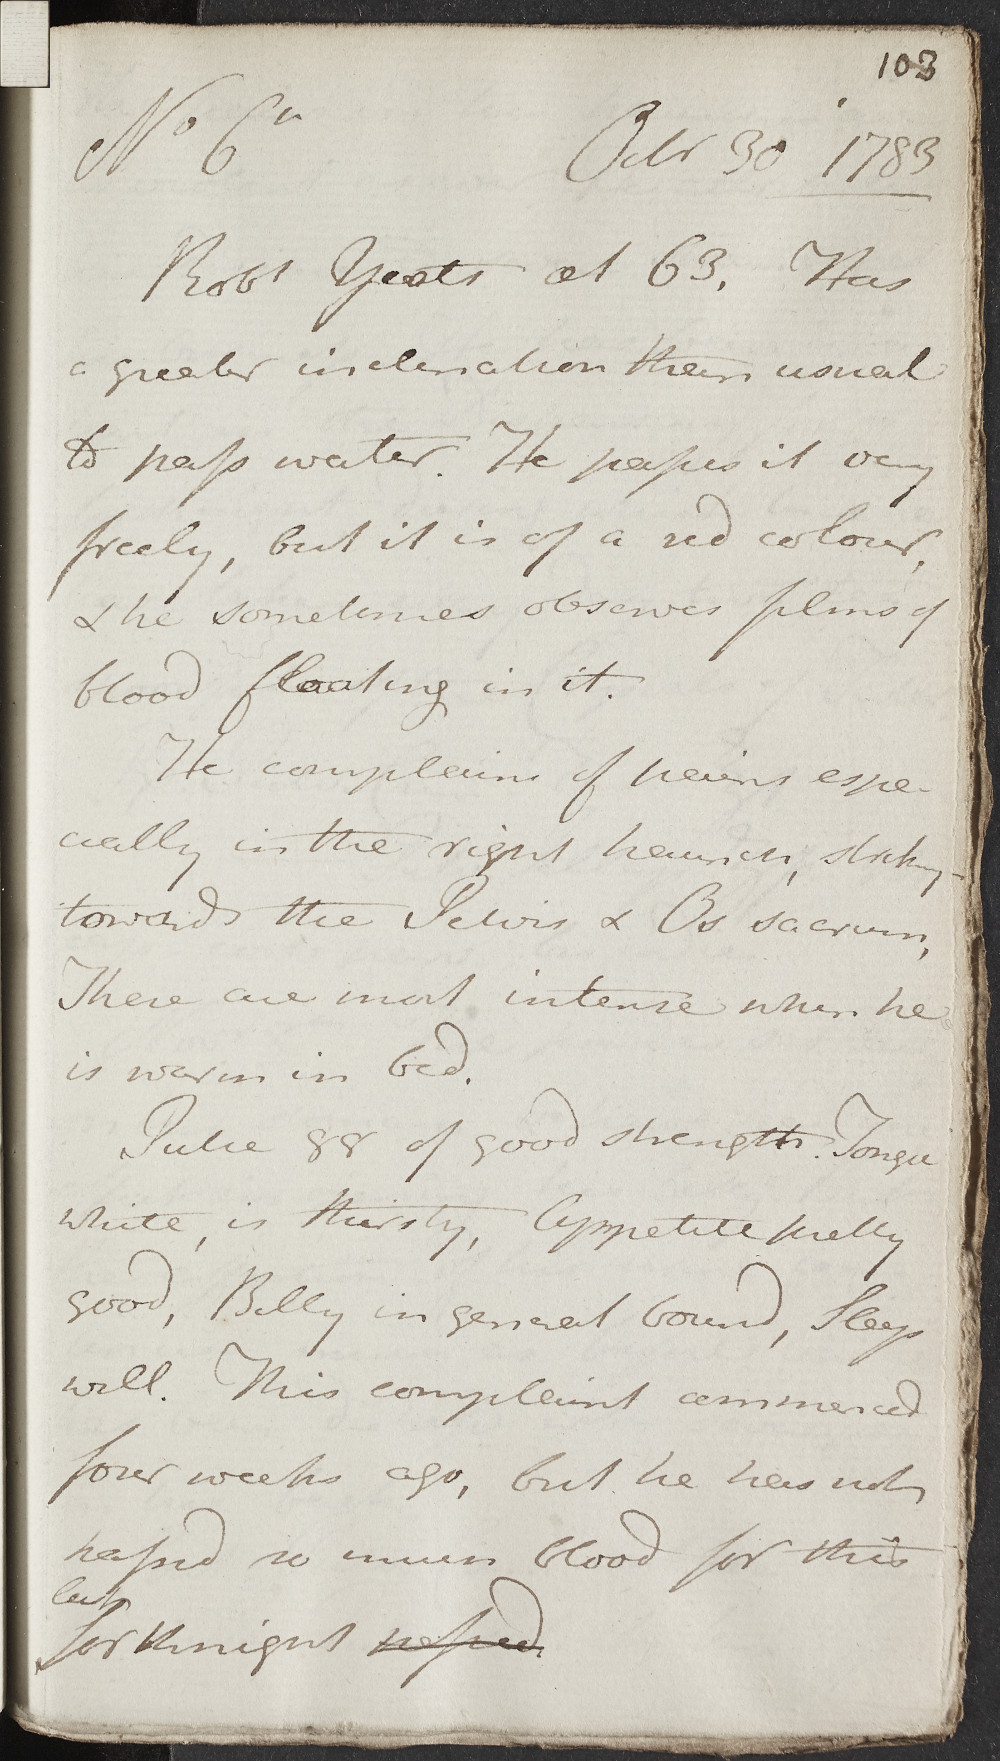 103
No 6
Octr 30 1783
Robt Yeats æt 63. Has
a greater inclination than usual
to pass water. He passes it very
freely, but it is of a red colour,
& he sometimes observes films of
blood floating in it.
He complains of pains espe-
cially in the right haunch,
towards the Pelvis & Os sacrum,
These are most intense when he
is warm in bed.
Pulse 88 of good strength. Tongue
white, is thirsty, Appetite pretty
good, Belly in general bound, Sleeps
well. This complaint commenced
four weeks ago, but he has not
passed so much blood for this
last
fortknight passed.